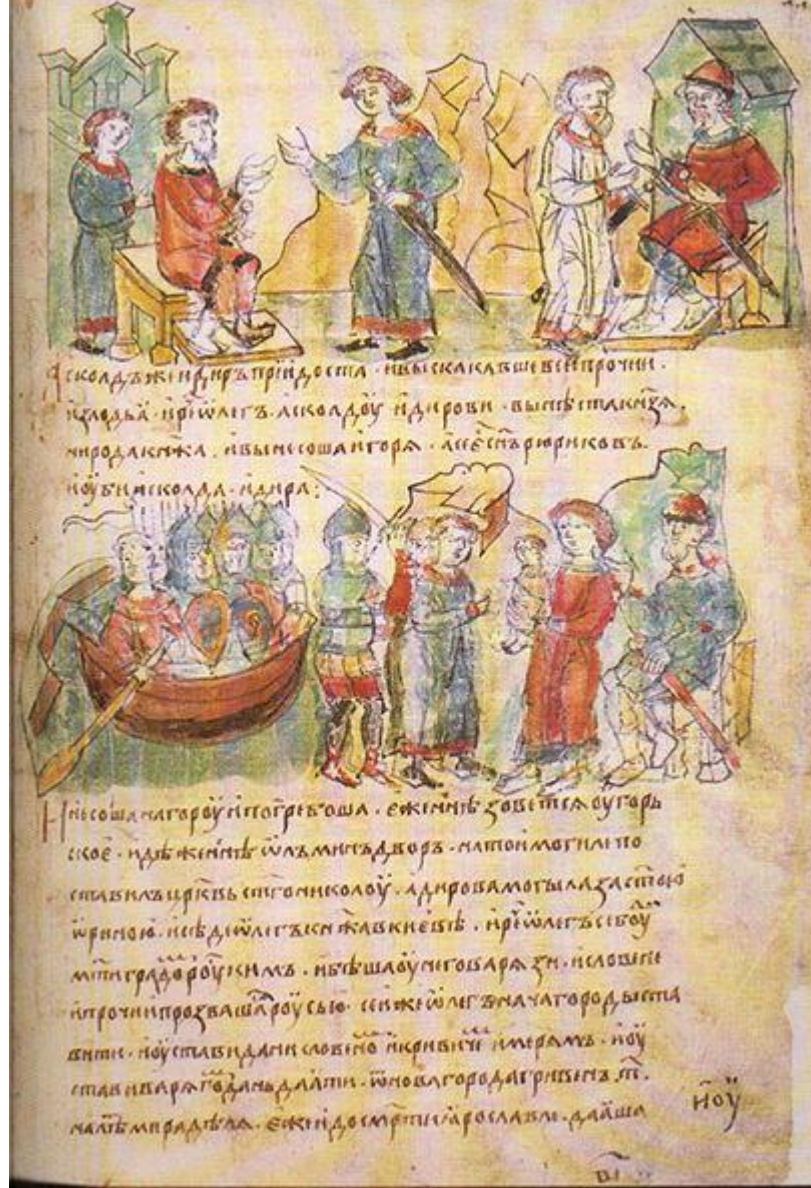 Асколдъ же и диръ прiидоста · и выскакавше вси прочии ·
излодьӑ · и реѿлегъ · асколдоу и дирови · вы нѣста кнѧзѧ ·
ни рода кнѧжа · и вынесоша игорѧ · а се е҃ сн҃ъ рюриковъ ·
и оубиша асколда · и дира :
Несоша на гороу и погребоша · еже нн҃ѣ зоветсѧ оугорь
ское · идѣже нн҃ѣ ѡлъминъ дворъ · на тои могилѣ по
ставилъ цр҃квь ст҃го николоу · а дирова могыла за ст҃ою
ѡриною · и сѣде ѡлегъ кнѧжа в киевѣ · и реѿлегъ се боуⷣ
мт҃и градомъ роукимъ · и бѣша оу него варѧзи · и словене
и прочии прозвашасѧ роусью · сеиже ѡлегъ нача городы ста
вити · и оустави дани словено и кривиче и мерѧмъ · и оу
стави варѧго дань даѧти · ѿ новагорода гривенъ т҃ ·
на лѣ мира дѣлѧ · еже и до смр҃ти ӕрославле · даӕша
и оу